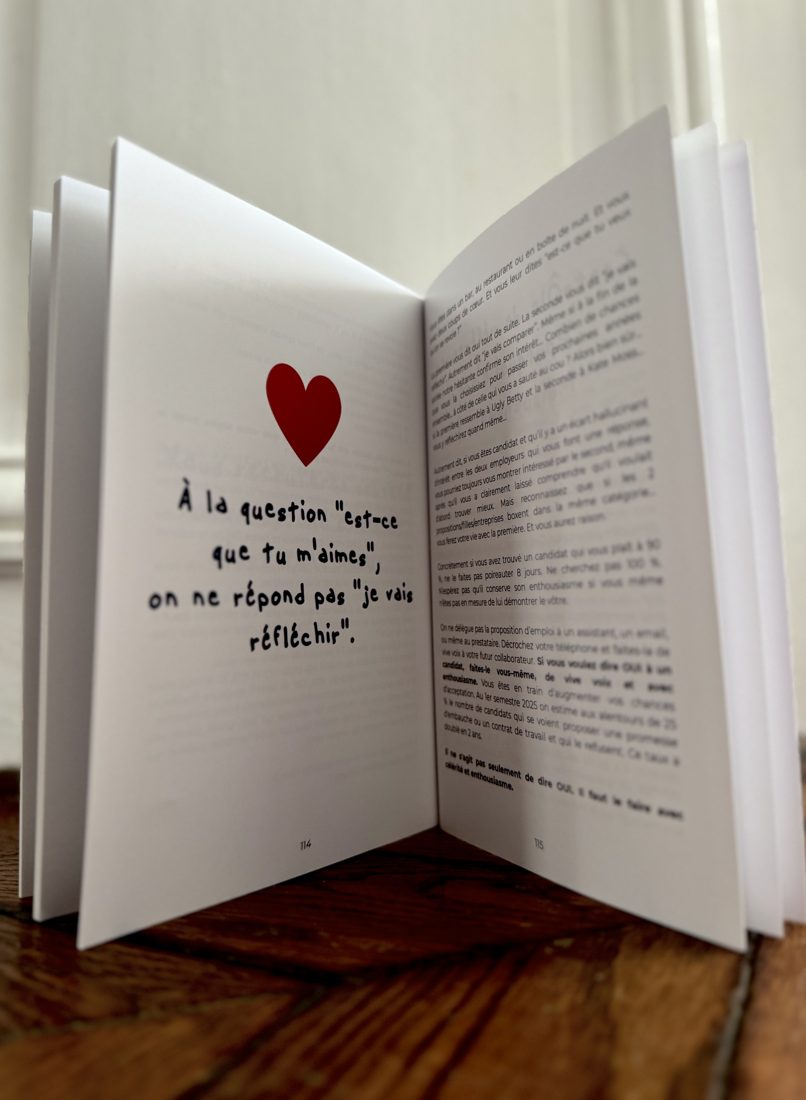 À la question "est-ce
que tu m'aimes",
on ne répond pas "je vais
réfléchir".
114
êtes dans un bar, au restaurant ou en boîte de nuit. Et vous
deux coups de cœur. Et vous leur dites "est-ce que tu veux
se revoie ?"
première vous dit oui tout de suite. La seconde vous dit "je vais
réfléchir". Autrement dit "je vais comparer". Même si à la fin de la
notre hésitante confirme son intérêt... Combien de chances
que vous la choisissiez pour passer vos prochaines années
ensemble... à côté de celle qui vous a sauté au cou ? Alors bien sûr...
si la première ressemble à Ugly Betty et la seconde à Kate Moss...
vous y réfléchirez quand même...
Autrement dit, si vous êtes candidat et qu'il y a un écart hallucinant
d'intérêt entre les deux employeurs qui vous font une réponse,
vous pourriez toujours vous montrer intéressé par le second, même
après qu'il vous a clairement laissé comprendre qu'il voulait
d'abord trouver mieux. Mais reconnaissez que si les 2
propositions/filles/entreprises boxent dans la même catégorie...
vous ferez votre vie avec la première. Et vous aurez raison.
Concrètement si vous avez trouvé un candidat qui vous plaît à 90
%, ne le faites pas poireauter 8 jours. Ne cherchez pas 100 %.
N'espérez pas qu'il conserve son enthousiasme si vous même
n'êtes pas en mesure de lui démontrer le vôtre.
On ne délègue pas la proposition d'emploi à un assistant, un email,
ou même au prestataire. Décrochez votre téléphone et faites-la de
vive voix à votre futur collaborateur. Si vous voulez dire OUI à un
candidat, faites-le vous-même, de vive voix et avec
enthousiasme. Vous êtes en train d'augmenter vos chances
d'acceptation. Au 1er semestre 2025 on estime aux alentours de 25
% le nombre de candidats qui se voient proposer une promesse
d'embauche ou un contrat de travail et qui le refusent. Ce taux a
doublé en 2 ans.
Il ne s'agit pas seulement de dire OUI. Il faut le faire avec
célérité et enthousiasme.
115